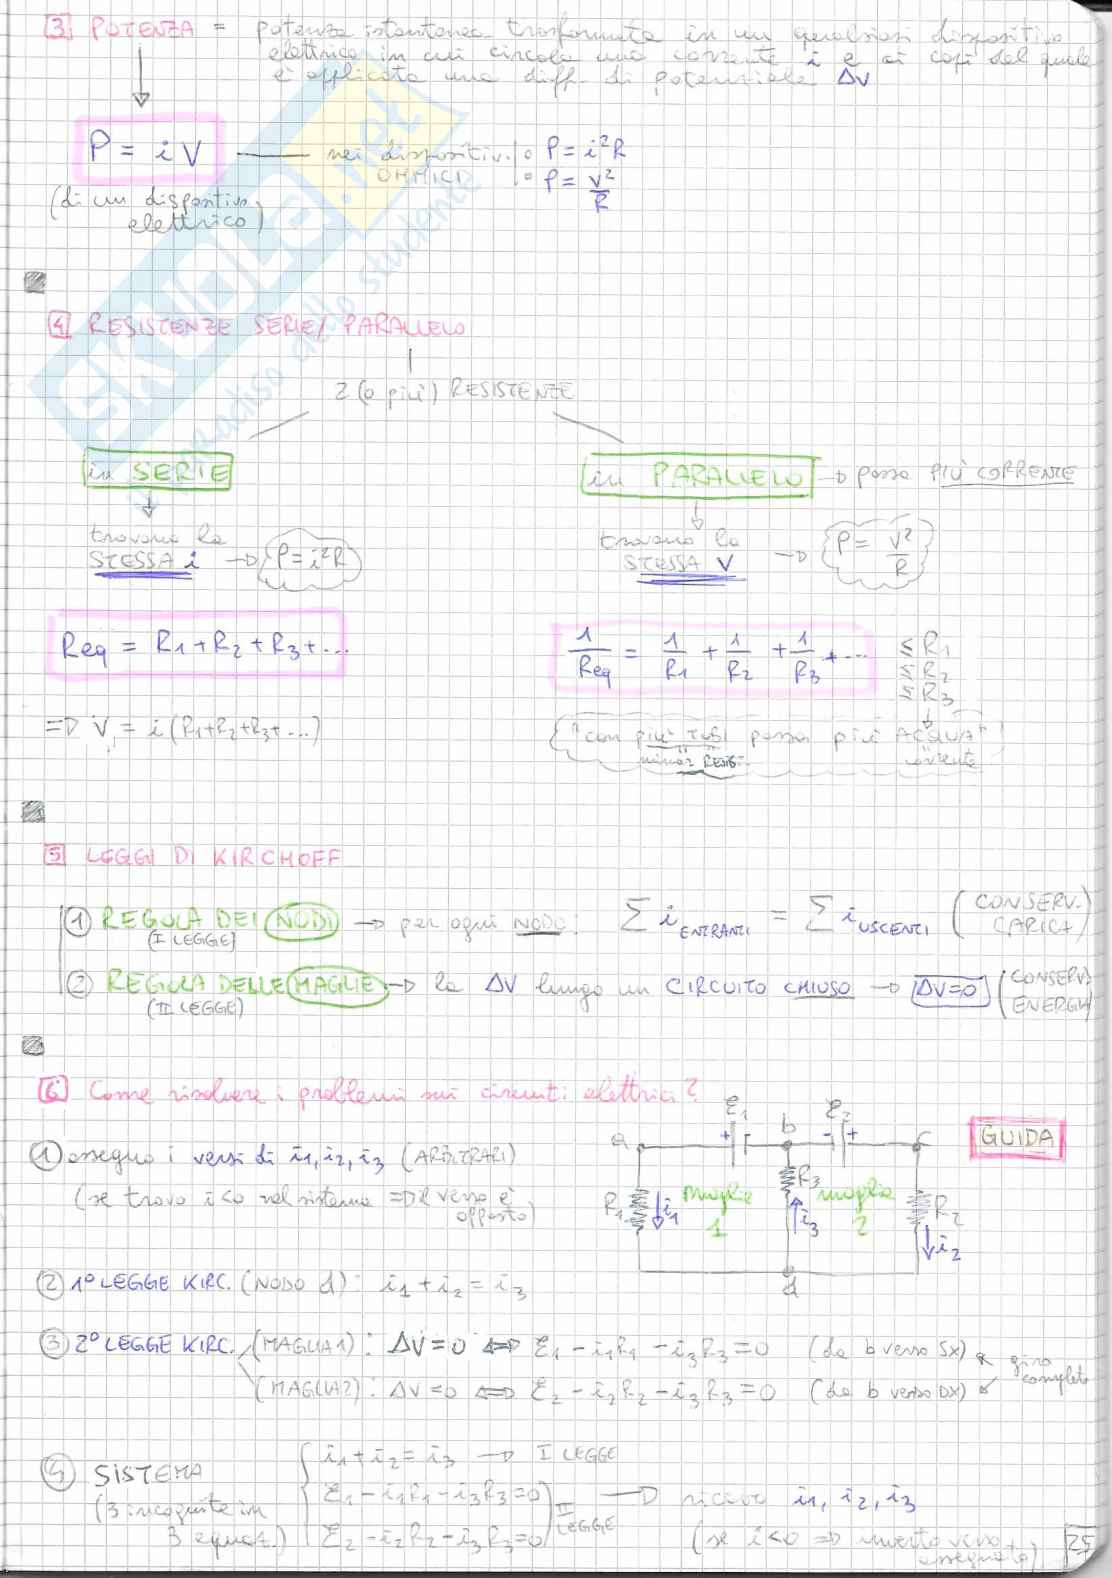 3 POTENZA = potenza istantanea trasformata in un qualsiasi dispositivo
elettrico in cui circola una corrente i e ai capi del quale
è applicata una diff. di potenziale ΔV
P = iV — nei dispositivi OHMICI
• P = i²R
• P = V²/R
(di un dispositivo
elettrico)
SKUOLA.net
il paradiso dello studente
4 RESISTENZE SERIE/PARALLELO
2 (o più) RESISTENZE
in SERIE
in PARALLELO → passa PIÙ CORRENTE
trovano la
STESSA i → P = i²R
trovano la
STESSA V → P = V²/R
Req = R1 + R2 + R3 + ...
1/Req = 1/R1 + 1/R2 + 1/R3 + ...
≤ R1
≤ R2
≤ R3
⇒ V = i (R1+R2+R3+...)
"con più TUBI passa più ACQUA"
minor RESIS.
corrente
5 LEGGI DI KIRCHOFF
1 REGOLA DEI NODI → per ogni NODO: Σ i ENTRANTI = Σ i USCENTI (CONSERV. CARICA)
(I LEGGE)
2 REGOLA DELLE MAGLIE → la ΔV lungo un CIRCUITO CHIUSO → ΔV=0 (CONSERV. ENERGIA)
(II LEGGE)
6 Come risolvere i problemi sui circuiti elettrici?
GUIDA
ε1 ε2
a + b - + c
R1 i1 maglia 1 R3 i3 maglia 2 R2 i2
d
1 assegno i versi di i1, i2, i3 (ARBITRARI)
(se trovo i<0 nel sistema ⇒ il verso è
opposto)
2 1° LEGGE KIRC. (NODO d): i1 + i2 = i3
3 2° LEGGE KIRC. (MAGLIA 1): ΔV = 0 ⇔ ε1 - i1R1 - i3R3 = 0 (da b verso SX)
giro completo
(MAGLIA 2): ΔV = 0 ⇔ ε2 - i2R2 - i3R3 = 0 (da b verso DX)
4 SISTEMA
(3 incognite in
3 equaz.)
i1 + i2 = i3 → I LEGGE
ε1 - i1R1 - i3R3 = 0
ε2 - i2R2 - i3R3 = 0
II LEGGE
→ ricavo i1, i2, i3
(se i<0 ⇒ inverto verso
assegnato)
52